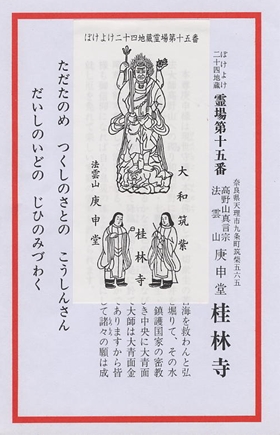 ぼけよけ
二十四地蔵
霊場第十五番
奈良県天理市九条町筑紫五六五
高野山真言宗
法雲山 庚申堂
桂林寺
ぼけよけ二十四地蔵霊場第十五番
大和筑紫
桂林寺
法雲山 庚申堂
海を救わんと弘
と堀りて、その水
鎮護国家の密教
き中央に大青面
大師は大青面金
でありますから皆
て諸々の願は成
ただたのめ つくしのさとの こうしんさん
だいしのいどの じひのみづわく